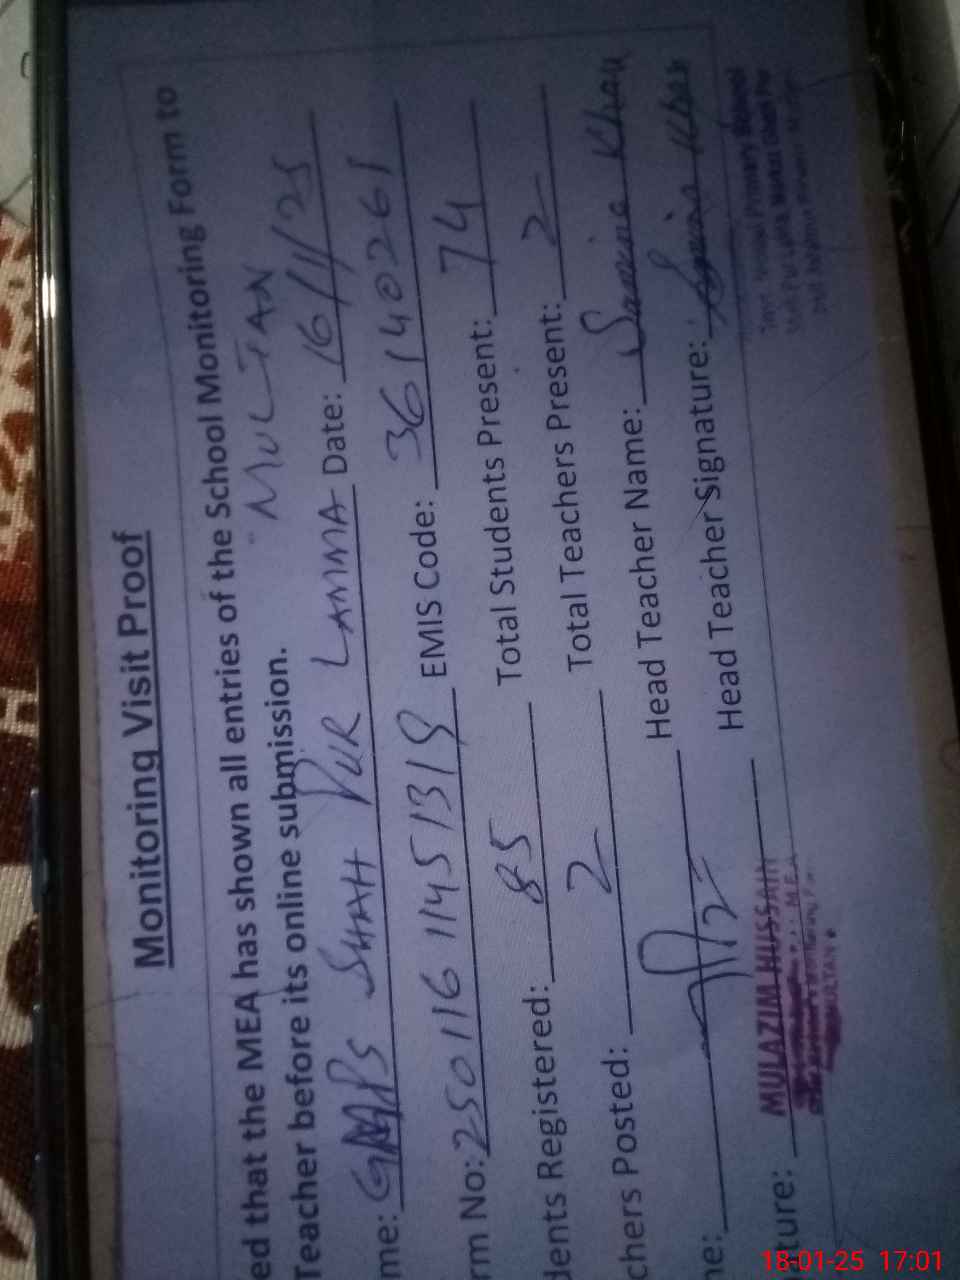 Monitoring Visit Proof
ed that the MEA has shown all entries of the School Monitoring Form to
Teacher before its online submission. MULTAN
me: SHAH PUR LAMMA Date: 16/1/25
rm No: 25011611451319 EMIS Code: 36140261
dents Registered: 85 Total Students Present: 74
chers Posted: 2 Total Teachers Present: 2
ne: Head Teacher Name: Samina Khan
ture: Head Teacher Signature:
MULAZIM HUSSAIN
M.E.A
MULTAN
Primary School
18-01-25 17:01